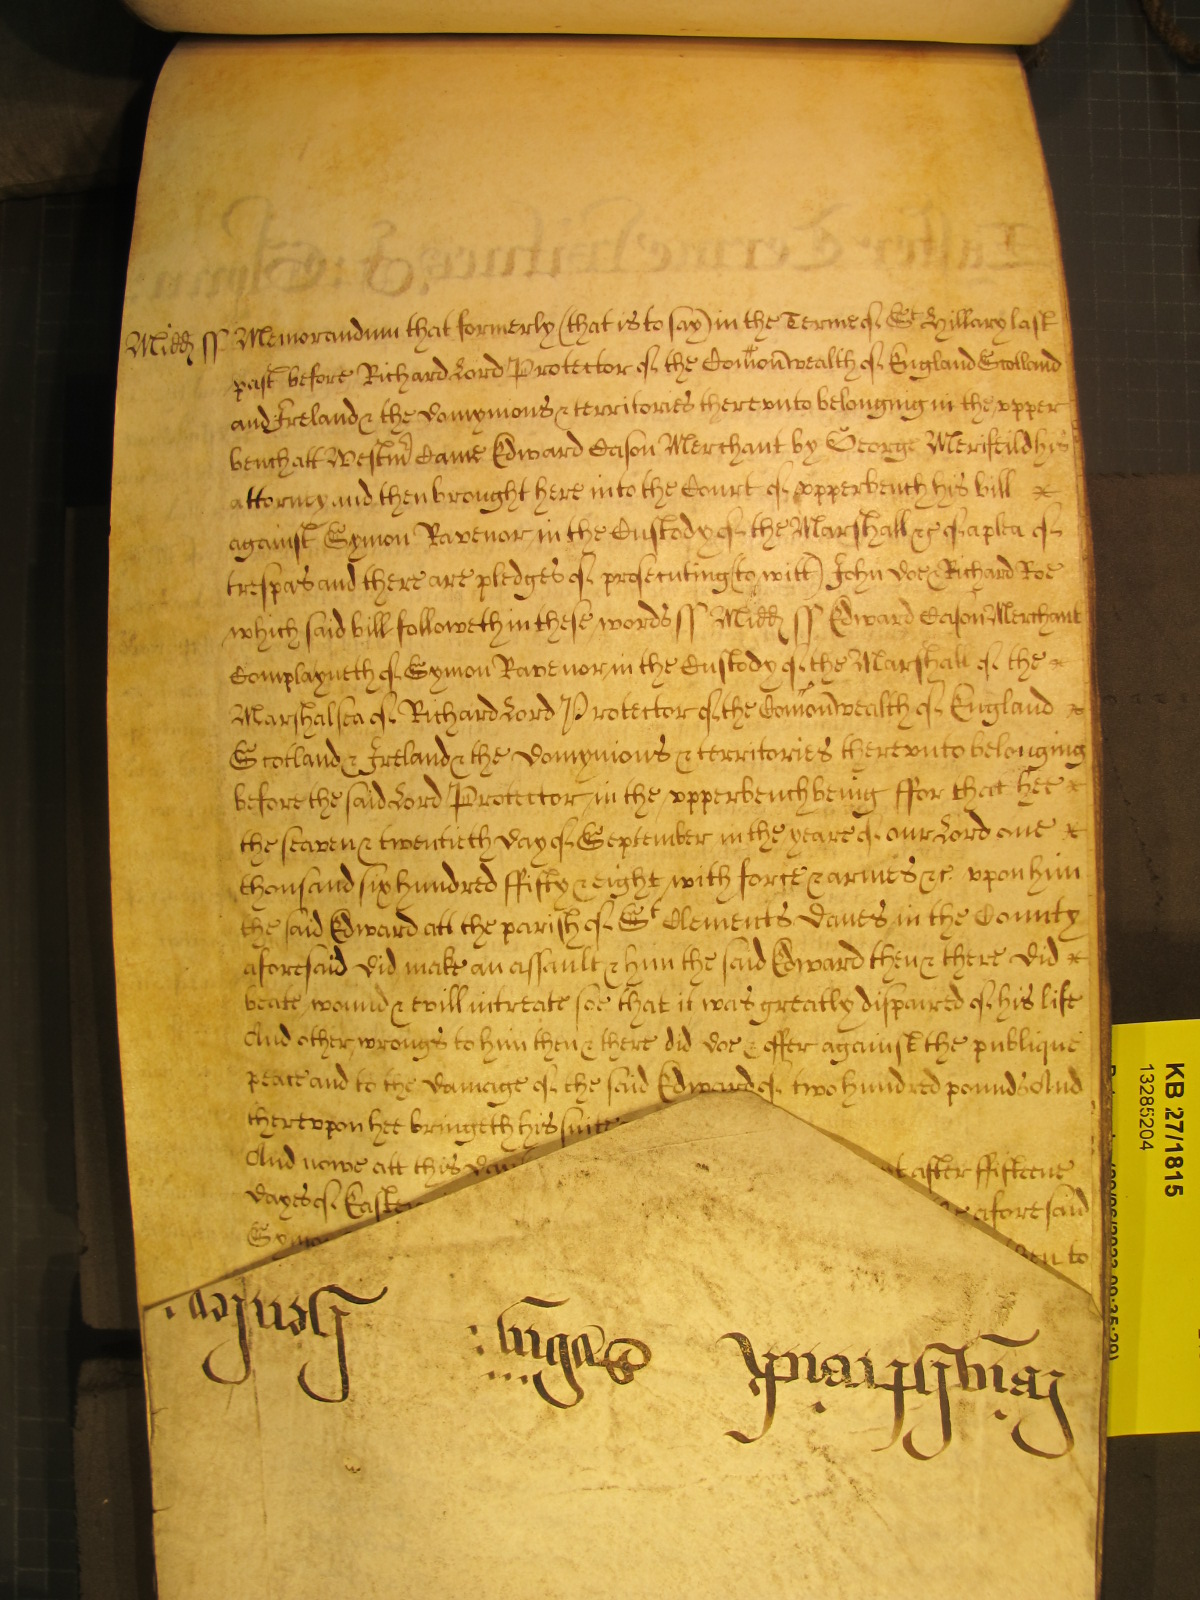 Midd ss Memorandum that formerly (that is to say) in the Terme of St Hillary last
past before Richard Lord Protector of the Com̃onwealth of England Scotland
and Ireland & the domynions & territories therevnto belonging in the vpper
bench att Westm̃ Came Edward Cason Merchant by George Merifeild his
attorney and then brought here into the Court of vpperbench his bill
against Symon Ravenor in the Custody of the Marshall &c of a plea of
trespas and there are pledges of prosecuting (to witt) John Doe & Richard Roe
which said bill followeth in these words ss Midd ss Edward Cason Merchant
Complayneth of Symon Ravenor in the Custody of the Marshall of the
Marshalsea of Richard Lord Protector of the Com̃onwealth of England
Scotland & Ireland & the domynions & territories therevnto belonging
before the said Lord Protector in the vpperbench being ffor that hee
the seaven & twentieth day of September in the yeare of our Lord one
thousand six hundred ffifty & eight with force & armes &c vpon him
the said Edward att the parish of St Clements Danes in the County
aforesaid did make an assault & him the said Edward then & there did
beate wound & evill intreate soe that it was greatly dispaired of his life
And other wrongs to him then & there did doe & offer against the publique
peace and to the damage of the said Edward of two hundred pounds And
therevpon hee bringeth his suite
And nowe att this day after ffifteene
dayes of Easter aforesaid
to
KB 27/1815
13285204